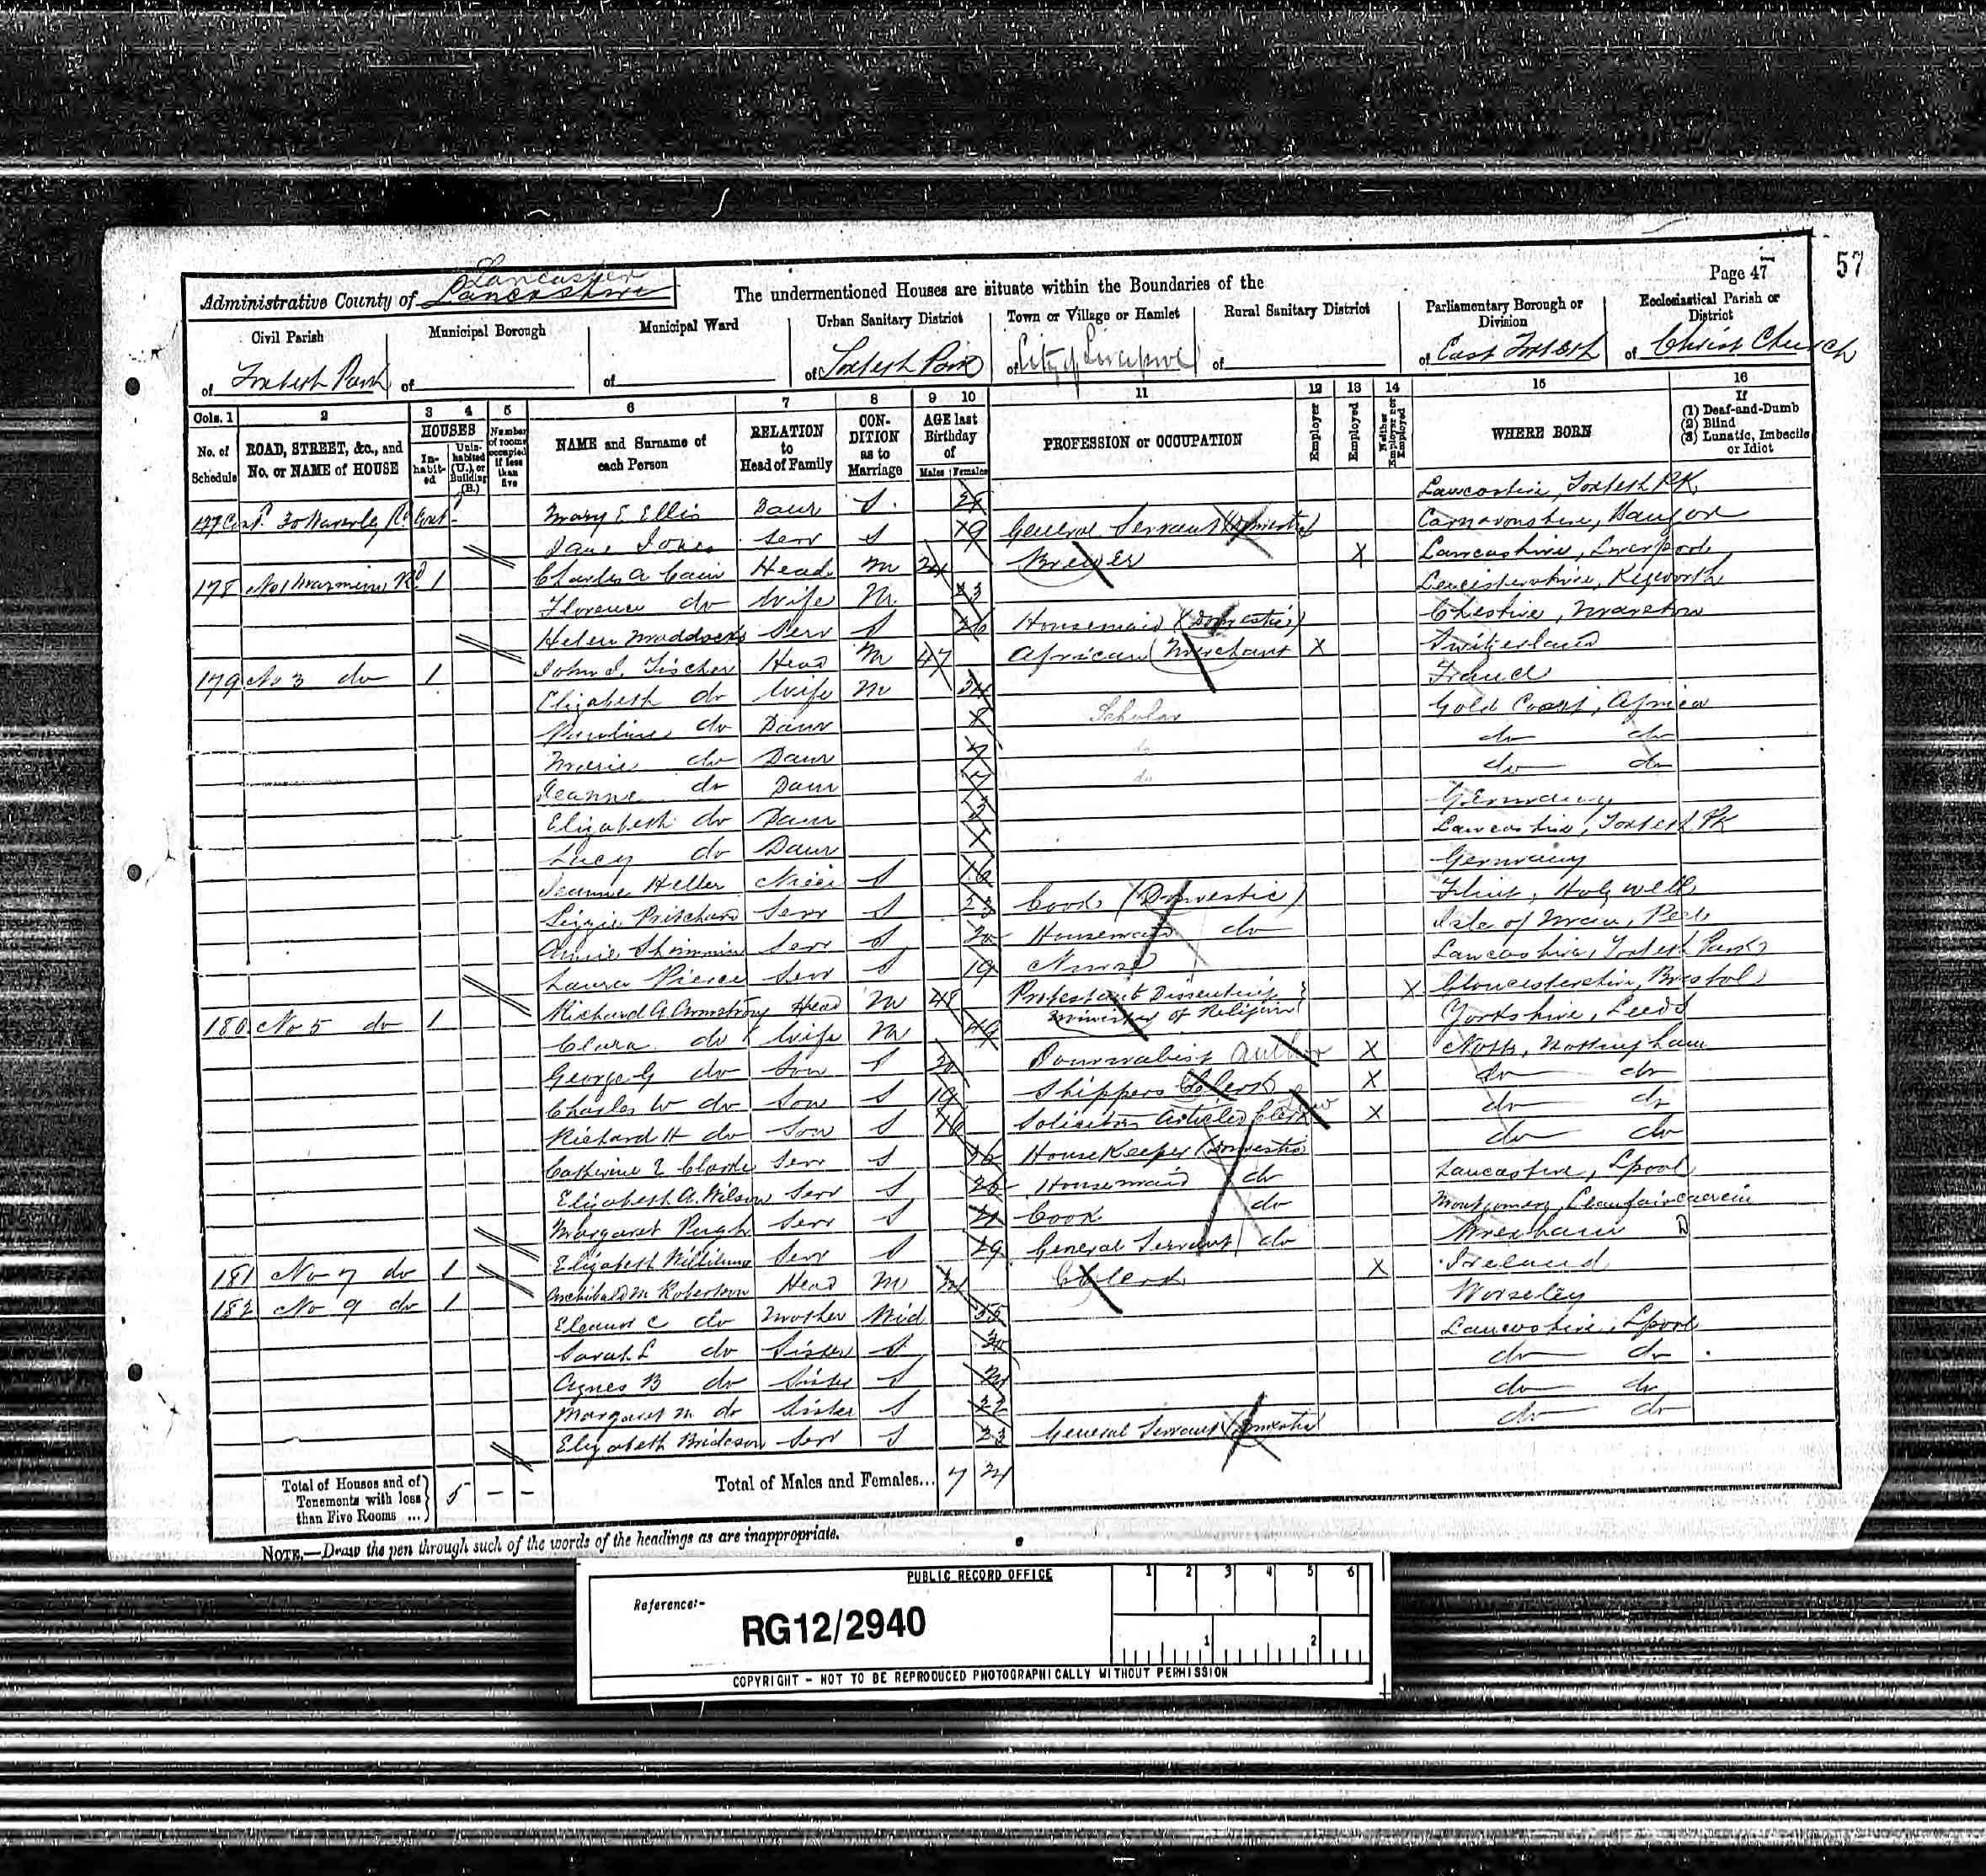 Page 47
57
Administrative County of Lancashire Lancaster
The undermentioned Houses are situate within the Boundaries of the
Civil Parish
of Toxteth Park
Municipal Borough
of
Municipal Ward
of
Urban Sanitary District
of Toxteth Park
Town or Village or Hamlet
of City of Liverpool
Rural Sanitary District
of
Parliamentary Borough or Division
of East Toxteth
Ecclesiastical Parish or District
of Christ Church
Cols. 1 2 3 4 5 6 7 8 9 10 11 12 13 14 15 16
No. of Schedule
ROAD, STREET, &c., and No. or NAME of HOUSE
HOUSES
In-habit-ed
Unin-habited (U.), or Building (B.)
Number of rooms occupied if less than five
NAME and Surname of each Person
RELATION to Head of Family
CON-DITION as to Marriage
AGE last Birthday of
Males Females
PROFESSION or OCCUPATION
Employer
Employed
Neither Employer nor Employed
WHERE BORN
If
(1) Deaf-and-Dumb
(2) Blind
(3) Lunatic, Imbecile or Idiot
177 Mary E Ellis Daur S. 28 Lancashire, Toxteth PK
Jane Jones Serv S 19 General Servant (Domestic) Carnarvonshire, Bangor
178 1 Charles A Cain Head M 24 Brewer X Lancashire, Liverpool
Florence do Wife M 23 Leicestershire, Kegworth
Helen Maddocks Serv S 26 Housemaid (Domestic) Cheshire,
179 No 3 do 1 John Fischer Head M 47 African Merchant X Switzerland
Elizabeth do Wife M 34
Pauline do Daur 8 Scholar Gold Coast, Africa
Marie do Daur 7 do do do
Jeanne do Daur do do do
Elizabeth do Daur 3 Germany
Lucy do Daur 1 Lancashire, Toxteth Pk
Jeanne Heller Niece S 16 Germany
Lizzie Pritchard Serv S 23 Cook (Domestic) Flint, Holywell
Annie Shimmin Serv S 20 Housemaid do Isle of Man, Peel
Laura Pierce Serv S 19 Nurse Lancashire, Toxteth Park
180 No 5 do 1 Richard A Armstrong Head M 48 Protestant Dissenting Minister of Religion X Gloucestershire, Bristol
Clara do Wife M 49 Yorkshire, Leeds
George G do Son S 20 Journalist Author X Notts, Nottingham
Charles W do Son S 19 Shippers Clerk X do do
Richard H do Son S 16 Solicitors Articled Clerk Law X do do
Catherine E Clarke Serv S 36 HouseKeeper (Domestic) do do
Elizabeth A. Wilson Serv S Housemaid do Lancashire, Lpool
Margaret Pugh Serv S 21 Cook do Montgomery, Llanfaircaerein
181 No 7 do 1 Elizabeth Williams Serv S 29 General Servant do Wrexham
182 No 9 do 1 Archibald M Robertson Head M Clerk X Ireland
Eleanor C do Mother Wid Worseley
Sarah L do Sister S 30 Lancashire, Lpool
Agnes B do Sister S do do
Margaret M do Sister S 22 do do
Elizabeth Brideson Serv S 23 General Servant (Domestic) do do
Total of Houses and of Tenements with less than Five Rooms ... 5 - -
Total of Males and Females... 7 24
NOTE.—Draw the pen through such of the words of the headings as are inappropriate.
PUBLIC RECORD OFFICE
1 2 3 4 5 6
Reference:-
RG12/2940
1 2
COPYRIGHT - NOT TO BE REPRODUCED PHOTOGRAPHICALLY WITHOUT PERMISSION